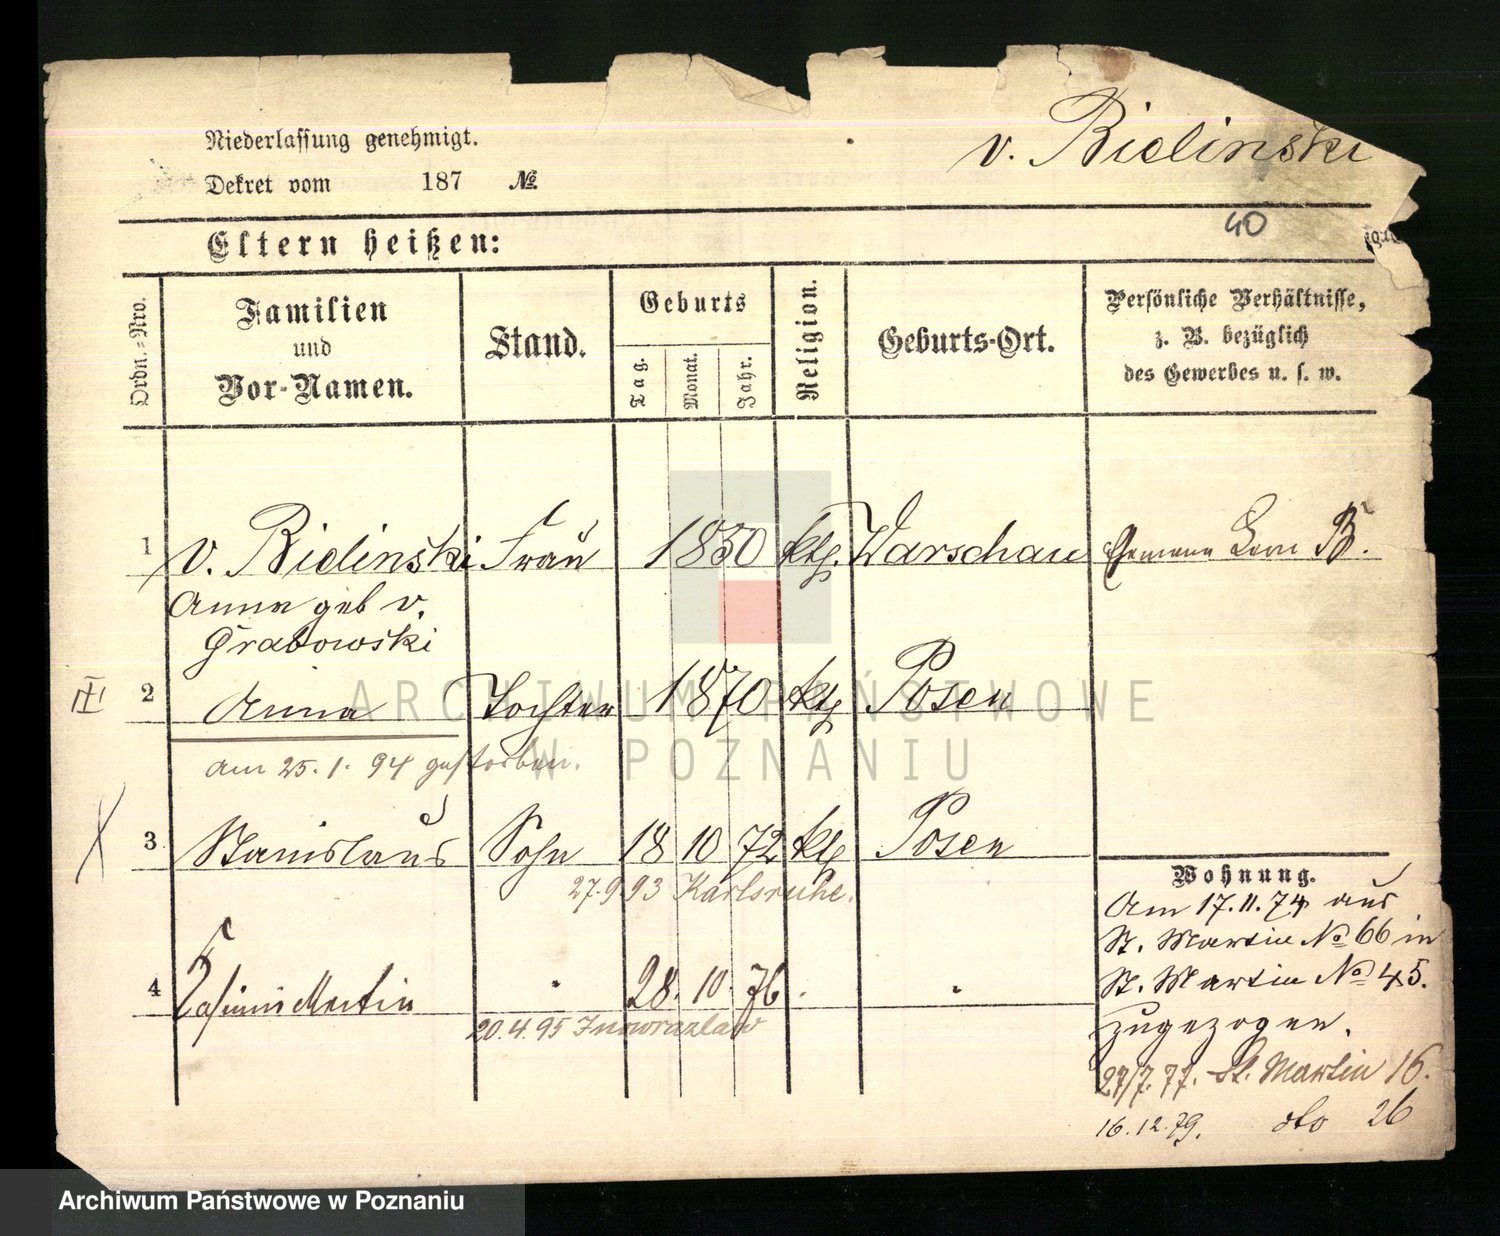 v. Bielinski
Niederlassung genehmigt.
Dekret vom 187 №
40
Eltern heißen:
Ordn.-Nro.
Familien
und
Vor-Namen.
Stand.
Geburts
Tag.
Monat.
Jahr.
Religion.
Geburts-Ort.
Persönliche Verhältnisse,
z. B. bezüglich
des Gewerbes u. s. w.
1 v. Bielinski Frau 1850 ktl. Warschau B.
Anna geb v.
Grabowski
III 2 Anna Tochter 1870 ktl Posen
am 25.1.94 gestorben.
3 Stanislaus Sohn 18 10 72 ktl Posen
27.9.93 Karlsruhe.
4 Casimir Martin " 28. 10. 76 . "
20.4.95 Inowrazlaw
Wohnung.
Am 17.11.74 aus
St. Martin No 66 in
St. Martin No 45.
zugezogen.
27/7.77. St. Martin 16.
16.12.79. dto 26
ARCHIWUM PAŃSTWOWE
W POZNANIU
Archiwum Państwowe w Poznaniu